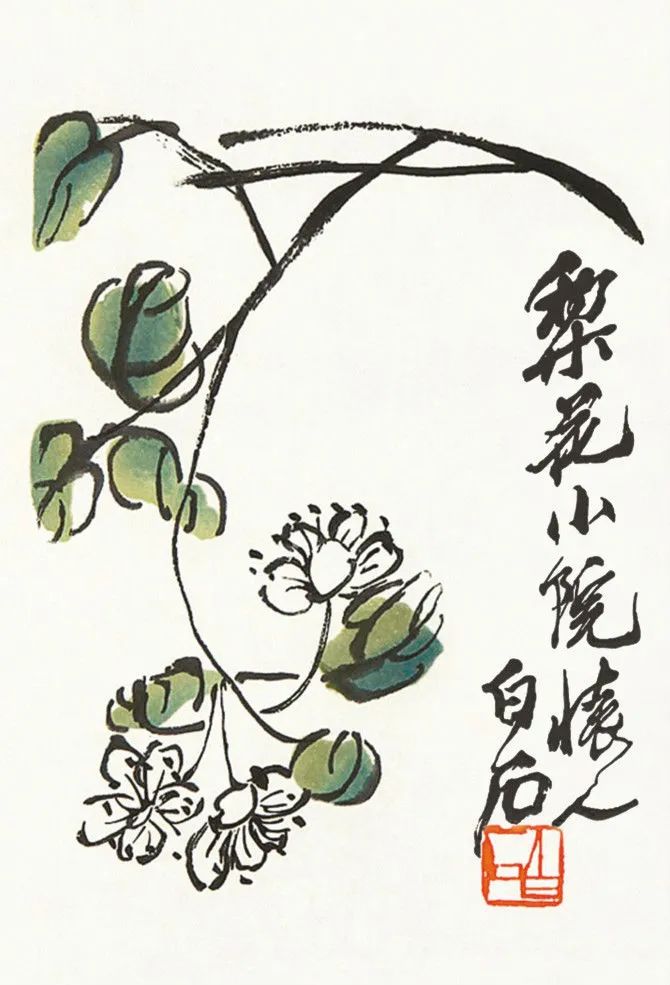 梨花小院懐人
白石